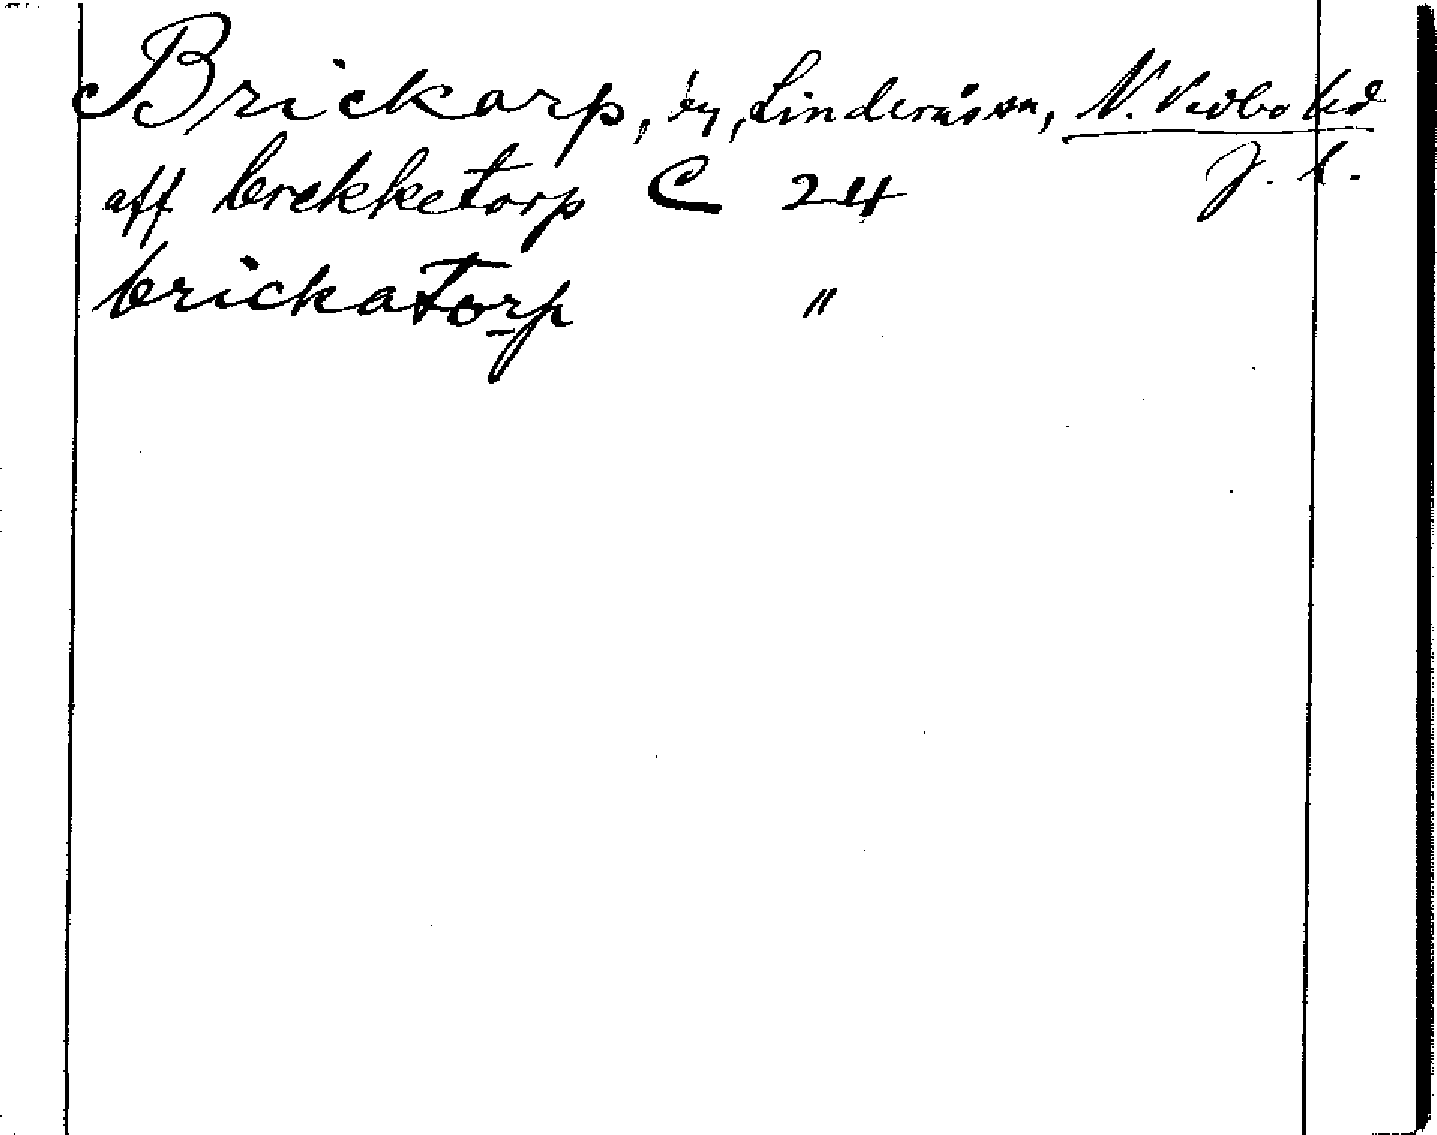 Brickarp, by, Linderås sn, N. Vedbo hd
aff brekketorp C 24 J. l.
brickatorp "